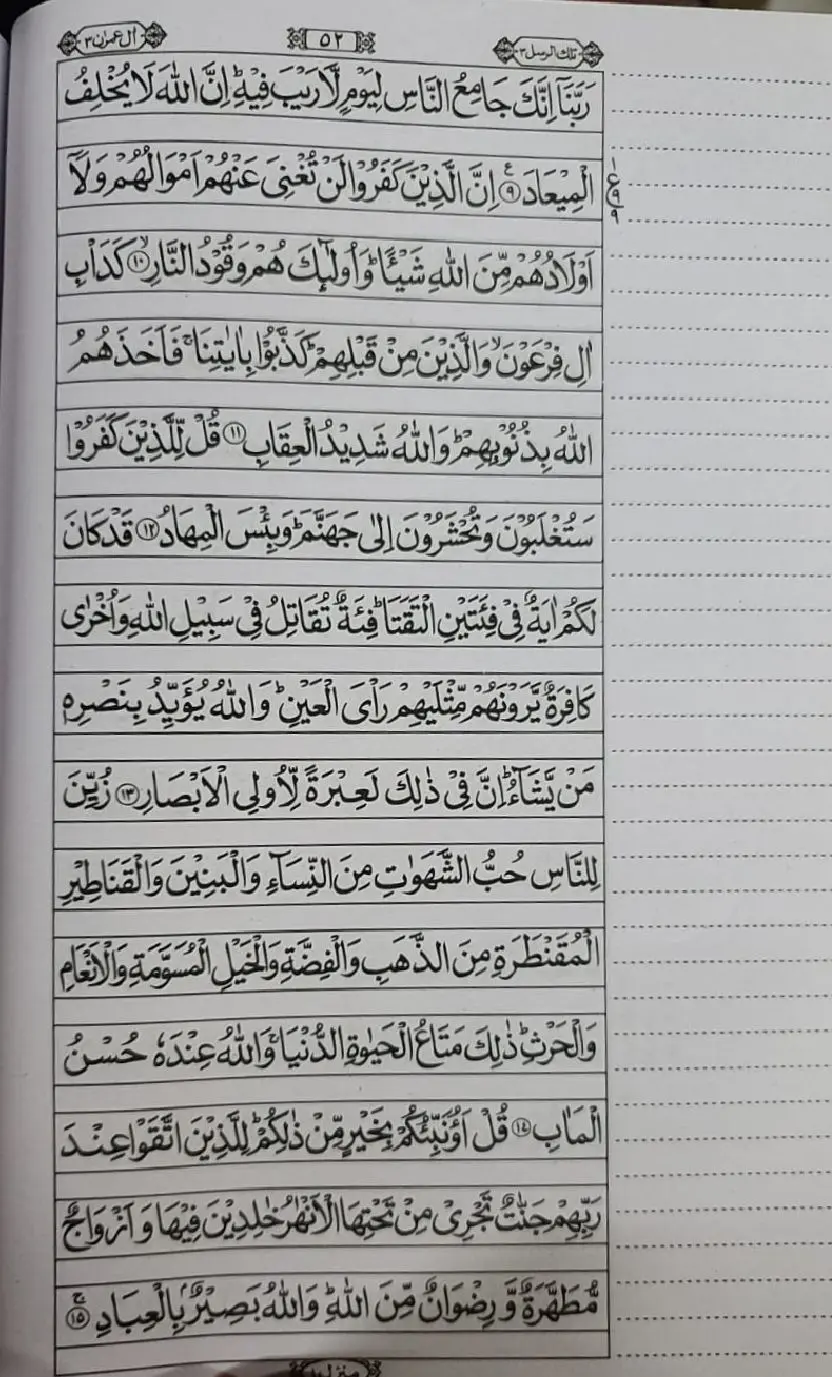 تلك الرسل ٣ ٥٢ اٰل عمرٰن ٣
رَبَّنَاۤ اِنَّكَ جَامِعُ النَّاسِ لِيَوْمٍ لَّا رَيْبَ فِيْهِ ؕ اِنَّ اللّٰهَ لَا يُخْلِفُ
الْمِيْعَادَ ﴿۹﴾ اِنَّ الَّذِيْنَ كَفَرُوْا لَنْ تُغْنِيَ عَنْهُمْ اَمْوَالُهُمْ وَلَاۤ
اَوْلَادُهُمْ مِّنَ اللّٰهِ شَيْـًٔا ؕ وَاُولٰٓئِكَ هُمْ وَقُوْدُ النَّارِ ﴿۱۰﴾ كَدَاْبِ
اٰلِ فِرْعَوْنَ ۙ وَالَّذِيْنَ مِنْ قَبْلِهِمْ ؕ كَذَّبُوْا بِاٰيٰتِنَا ۚ فَاَخَذَهُمُ
اللّٰهُ بِذُنُوْبِهِمْ ؕ وَاللّٰهُ شَدِيْدُ الْعِقَابِ ﴿۱۱﴾ قُلْ لِّلَّذِيْنَ كَفَرُوْا
سَتُغْلَبُوْنَ وَتُحْشَرُوْنَ اِلٰى جَهَنَّمَ ؕ وَبِئْسَ الْمِهَادُ ﴿۱۲﴾ قَدْ كَانَ
لَكُمْ اٰيَةٌ فِيْ فِئَتَيْنِ الْتَقَتَا ؕ فِئَةٌ تُقَاتِلُ فِيْ سَبِيْلِ اللّٰهِ وَاُخْرٰى
كَافِرَةٌ يَّرَوْنَهُمْ مِّثْلَيْهِمْ رَاْيَ الْعَيْنِ ؕ وَاللّٰهُ يُؤَيِّدُ بِنَصْرِهٖ
مَنْ يَّشَآءُ ؕ اِنَّ فِيْ ذٰلِكَ لَعِبْرَةً لِّاُولِي الْاَبْصَارِ ﴿۱۳﴾ زُيِّنَ
لِلنَّاسِ حُبُّ الشَّهَوٰتِ مِنَ النِّسَآءِ وَالْبَنِيْنَ وَالْقَنَاطِيْرِ
الْمُقَنْطَرَةِ مِنَ الذَّهَبِ وَالْفِضَّةِ وَالْخَيْلِ الْمُسَوَّمَةِ وَالْاَنْعَامِ
وَالْحَرْثِ ؕ ذٰلِكَ مَتَاعُ الْحَيٰوةِ الدُّنْيَا ۚ وَاللّٰهُ عِنْدَهٗ حُسْنُ
الْمَاٰبِ ﴿۱۴﴾ قُلْ اَؤُنَبِّئُكُمْ بِخَيْرٍ مِّنْ ذٰلِكُمْ ؕ لِلَّذِيْنَ اتَّقَوْا عِنْدَ
رَبِّهِمْ جَنّٰتٌ تَجْرِيْ مِنْ تَحْتِهَا الْاَنْهٰرُ خٰلِدِيْنَ فِيْهَا وَاَزْوَاجٌ
مُّطَهَّرَةٌ وَّرِضْوَانٌ مِّنَ اللّٰهِ ؕ وَاللّٰهُ بَصِيْرٌۢ بِالْعِبَادِ ﴿۱۵﴾